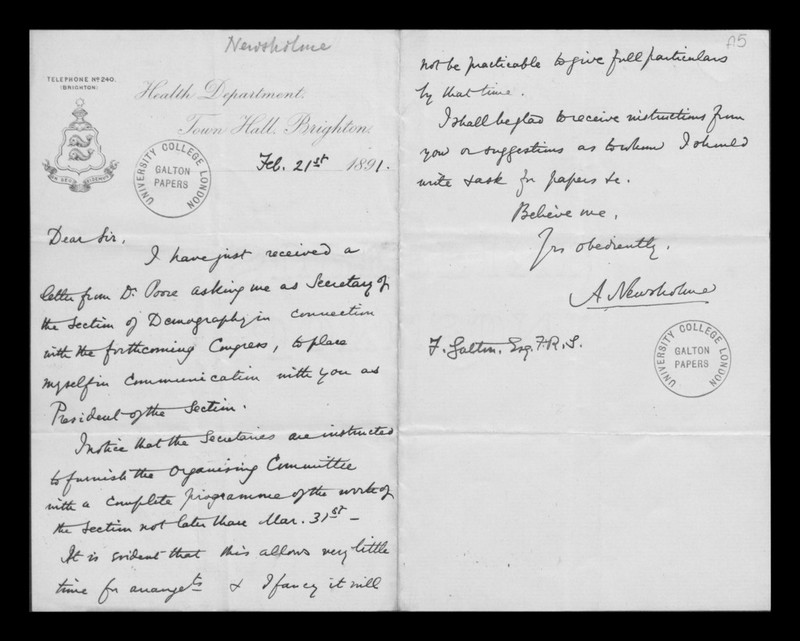 Newsholme
TELEPHONE Nº 240.
(BRIGHTON)
Health Department.
Town Hall, Brighton.
UNIVERSITY COLLEGE LONDON
GALTON
PAPERS
Feb. 21st 1891.
Dear Sir,
I have just received a
letter from Dr. Poore asking me as Secretary of
the Section of Demography in connection
with the forthcoming Congress, to place
myself in communication with you as
President of the Section.
I notice that the Secretaries are instructed
to furnish the Organising Committee
with a complete programme of the work of
the Section not later than Mar. 31st –
It is evident that this allows very little
time for arrangets & I fancy it will
A5
not be practicable to give full particulars
by that time.
I shall be glad to receive instructions from
you or suggestions as to whom I should
write & ask for papers &c.
Believe me,
Yrs obediently,
A Newsholme
F. Galton, Esq. F.R.S.
UNIVERSITY COLLEGE LONDON
GALTON
PAPERS